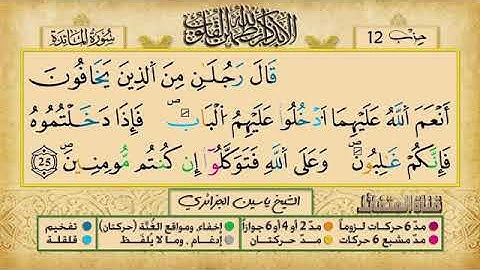 حزب 12
ألا بذكر الله تطمئن القلوب
سورة المائدة
قَالَ رَجُلَٰنِ مِنَ اَ۬لذِينَ يَخَافُونَ
أَنْعَمَ اَ۬للَّهُ عَلَيْهِمَا اَ۟دْخُلُواْ عَلَيْهِمُ اُ۬لْبَابَۖ فَإِذَا دَخَلْتُمُوهُ
فَإِنَّكُمْ غَٰلِبُونَۖ وَعَلَى اَ۬للَّهِ فَتَوَكَّلُوٓاْ إِن كُنتُم مُّومِنِينَۖ 25
الشيخ ياسين الجزائري
مدّ 6 حركات لزوماً
مدّ 2 أو 4 أو 6 جوازاً
إخفاء، ومواقع الغُنَّة (حركتان)
تفخيم
مدّ مشبع 6 حركات
مدّ حركتان
إدغام، وما لا يُلفَظ
قلقلة